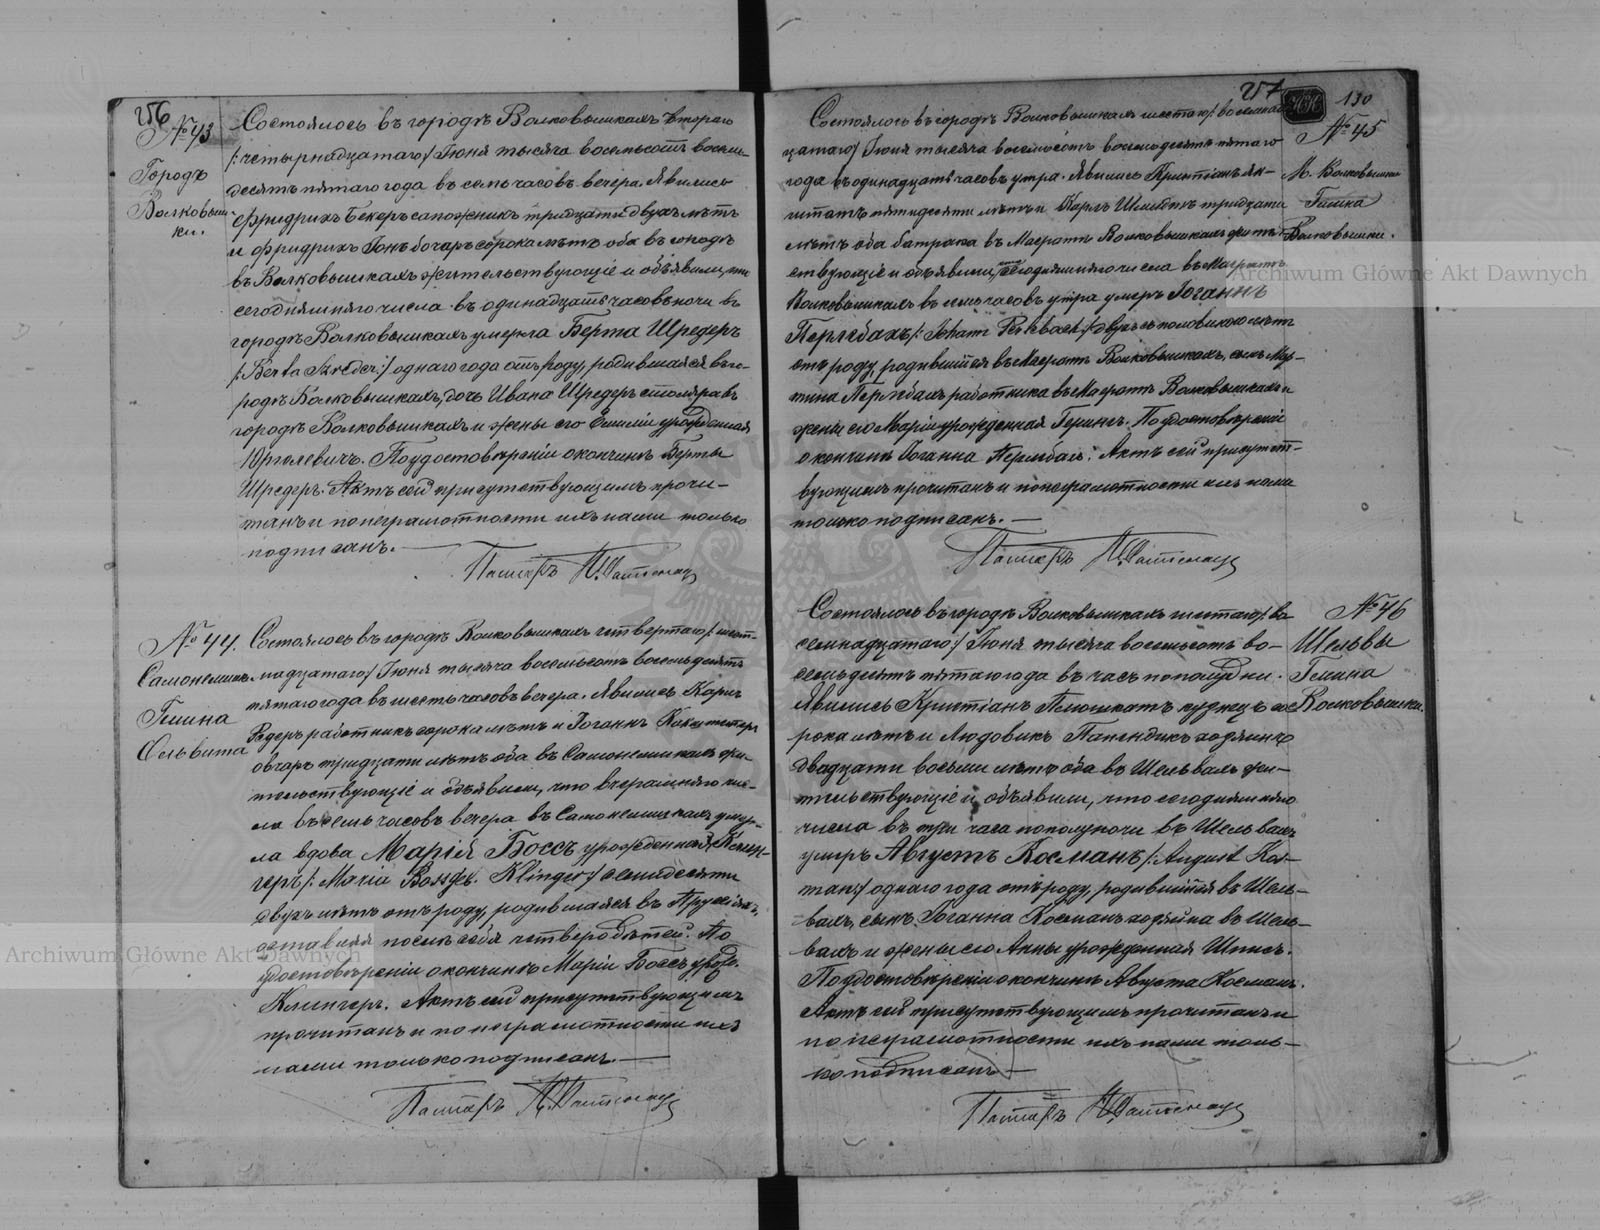 256
№ 43
Городъ
Волковыш-
ки.
Состоялось въ городѣ Волковышкахъ втораго
/:четырнадцатаго/ Іюня тысяча восемьсотъ восемь-
десятъ пятаго года въ семь часовъ вечера. Явились
Фридрихъ Бекеръ сапожникъ тридцати двухъ лѣтъ
и Фридрихъ Іонъ бочаръ сорока лѣтъ оба въ городѣ
въ Волковышкахъ жительствующіе и объявили, что
сегодняшняго числа въ одинадцать часовъ ночи въ
городѣ Волковышкахъ умерла Берта Шредеръ
/:Berta Szreder:/ одного года отъ роду, родившаяся въ го-
родѣ Волковышкахъ, дочь Ивана Шредеръ столяра въ
городѣ Волковышкахъ и жены его Емиліи урожденная
Юргелевичъ. По удостовѣреніи о кончинѣ Берты
Шредеръ. Актъ сей присутствующимъ прочи-
танъ и по неграмотности ихъ нами только
подписанъ.
Пасторъ
№ 44.
Самонемишк.
Гмина
Ольвита
Состоялось въ городѣ Волковышкахъ четвертаго /:шест-
надцатаго:/ Іюня тысяча восемьсотъ восемьдесятъ
пятаго года въ шесть часовъ вечера. Явились Карлъ
Редеръ работникъ сорока лѣтъ и Іоганнъ
овчаръ тридцати лѣтъ оба въ Самонемишкахъ жи-
тельствующіе и объявили, что вчерашняго чис-
ла въ семь часовъ вечера въ Самонемишкахъ умер-
ла вдова Марія Боссъ урожденная Клин-
геръ /: Maria Boss geb. Klinger:/ семидесяти
двухъ лѣтъ отъ роду, родившаяся въ Пруссіи,
оставляя послѣ себя четверо дѣтей. По
удостовѣреніи о кончинѣ Маріи Боссъ урож.
Клингеръ. Актъ сей присутствующимъ
прочитанъ и по неграмотности ихъ
нами только подписанъ.
Пасторъ
257
130
№ 45
М. Волковышки
Гмина
Волковышки.
Состоялось въ городѣ Волковышкахъ шестого /: восемнад-
цатаго:/ Іюня тысяча восемьсотъ восемьдесятъ пятаго
года въ одинадцать часовъ утра. Явились Христіанъ Як-
штатъ пятидесяти лѣтъ и Карлъ Шмидтъ тридцати
лѣтъ оба батрака въ Маіоратѣ Волковышкахъ житель-
ствующіе и объявили, что сегодняшняго числа въ Маіоратѣ
Волковышкахъ въ семь часовъ утра умеръ Іоганнъ
Перлебахъ /: Johann Perlebach:/ двухъ съ половиною лѣтъ
отъ роду, родившійся въ Маіоратѣ Волковышкахъ, сынъ Мар-
тина Перлебахъ работника въ Маіоратѣ Волковышкахъ и
жены его Маріи урожденная Герингъ. По удостовѣреніи
о кончинѣ Іоганна Перлебахъ. Актъ сей присутст-
вующимъ прочитанъ и по неграмотности ихъ нами
только подписанъ.
Пасторъ
№ 46
Шельвы
Гмина
Волковышки.
Состоялось въ городѣ Волковышкахъ шестаго /: во
семнадцатаго:/ Іюня тысяча восемьсотъ во-
семьдесятъ пятаго года въ часъ пополудни.
Явились Христіанъ Плюшкатъ кузнецъ со-
рока лѣтъ и Людовикъ Папендикъ хозяинъ
двадцати восьми лѣтъ оба въ Шельвахъ жи-
тельствующіе и объявили, что сегодняшняго
числа въ три часа пополуночи въ Шельвахъ
умеръ Августъ Косманъ /: August Kos-
man:/ одного года отъ роду, родившійся въ Шель-
вахъ, сынъ Іоганна Косманъ хозяина въ Шель-
вахъ и жены его Анны урожденная Шписъ.
По удостовѣреніи о кончинѣ Августа Косманъ.
Актъ сей присутствующимъ прочитанъ и
по неграмотности ихъ нами толь-
ко подписанъ
Пасторъ
Archiwum Główne Akt Dawnych
Archiwum Główne Akt Dawnych